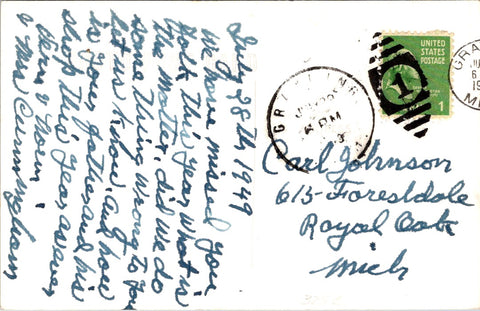 July 28th 1949
We have missed you
folk this year what is
the matter, did we do
something wrong to you
let us know, and how
is your father and his
shop this year as ever
& Mrs Cunningham
UNITED
STATES
POSTAGE
1
1
GRAYLING
PM
GRA
6
19
Carl Johnson
615-Forestdale
Royal Oak
Mich